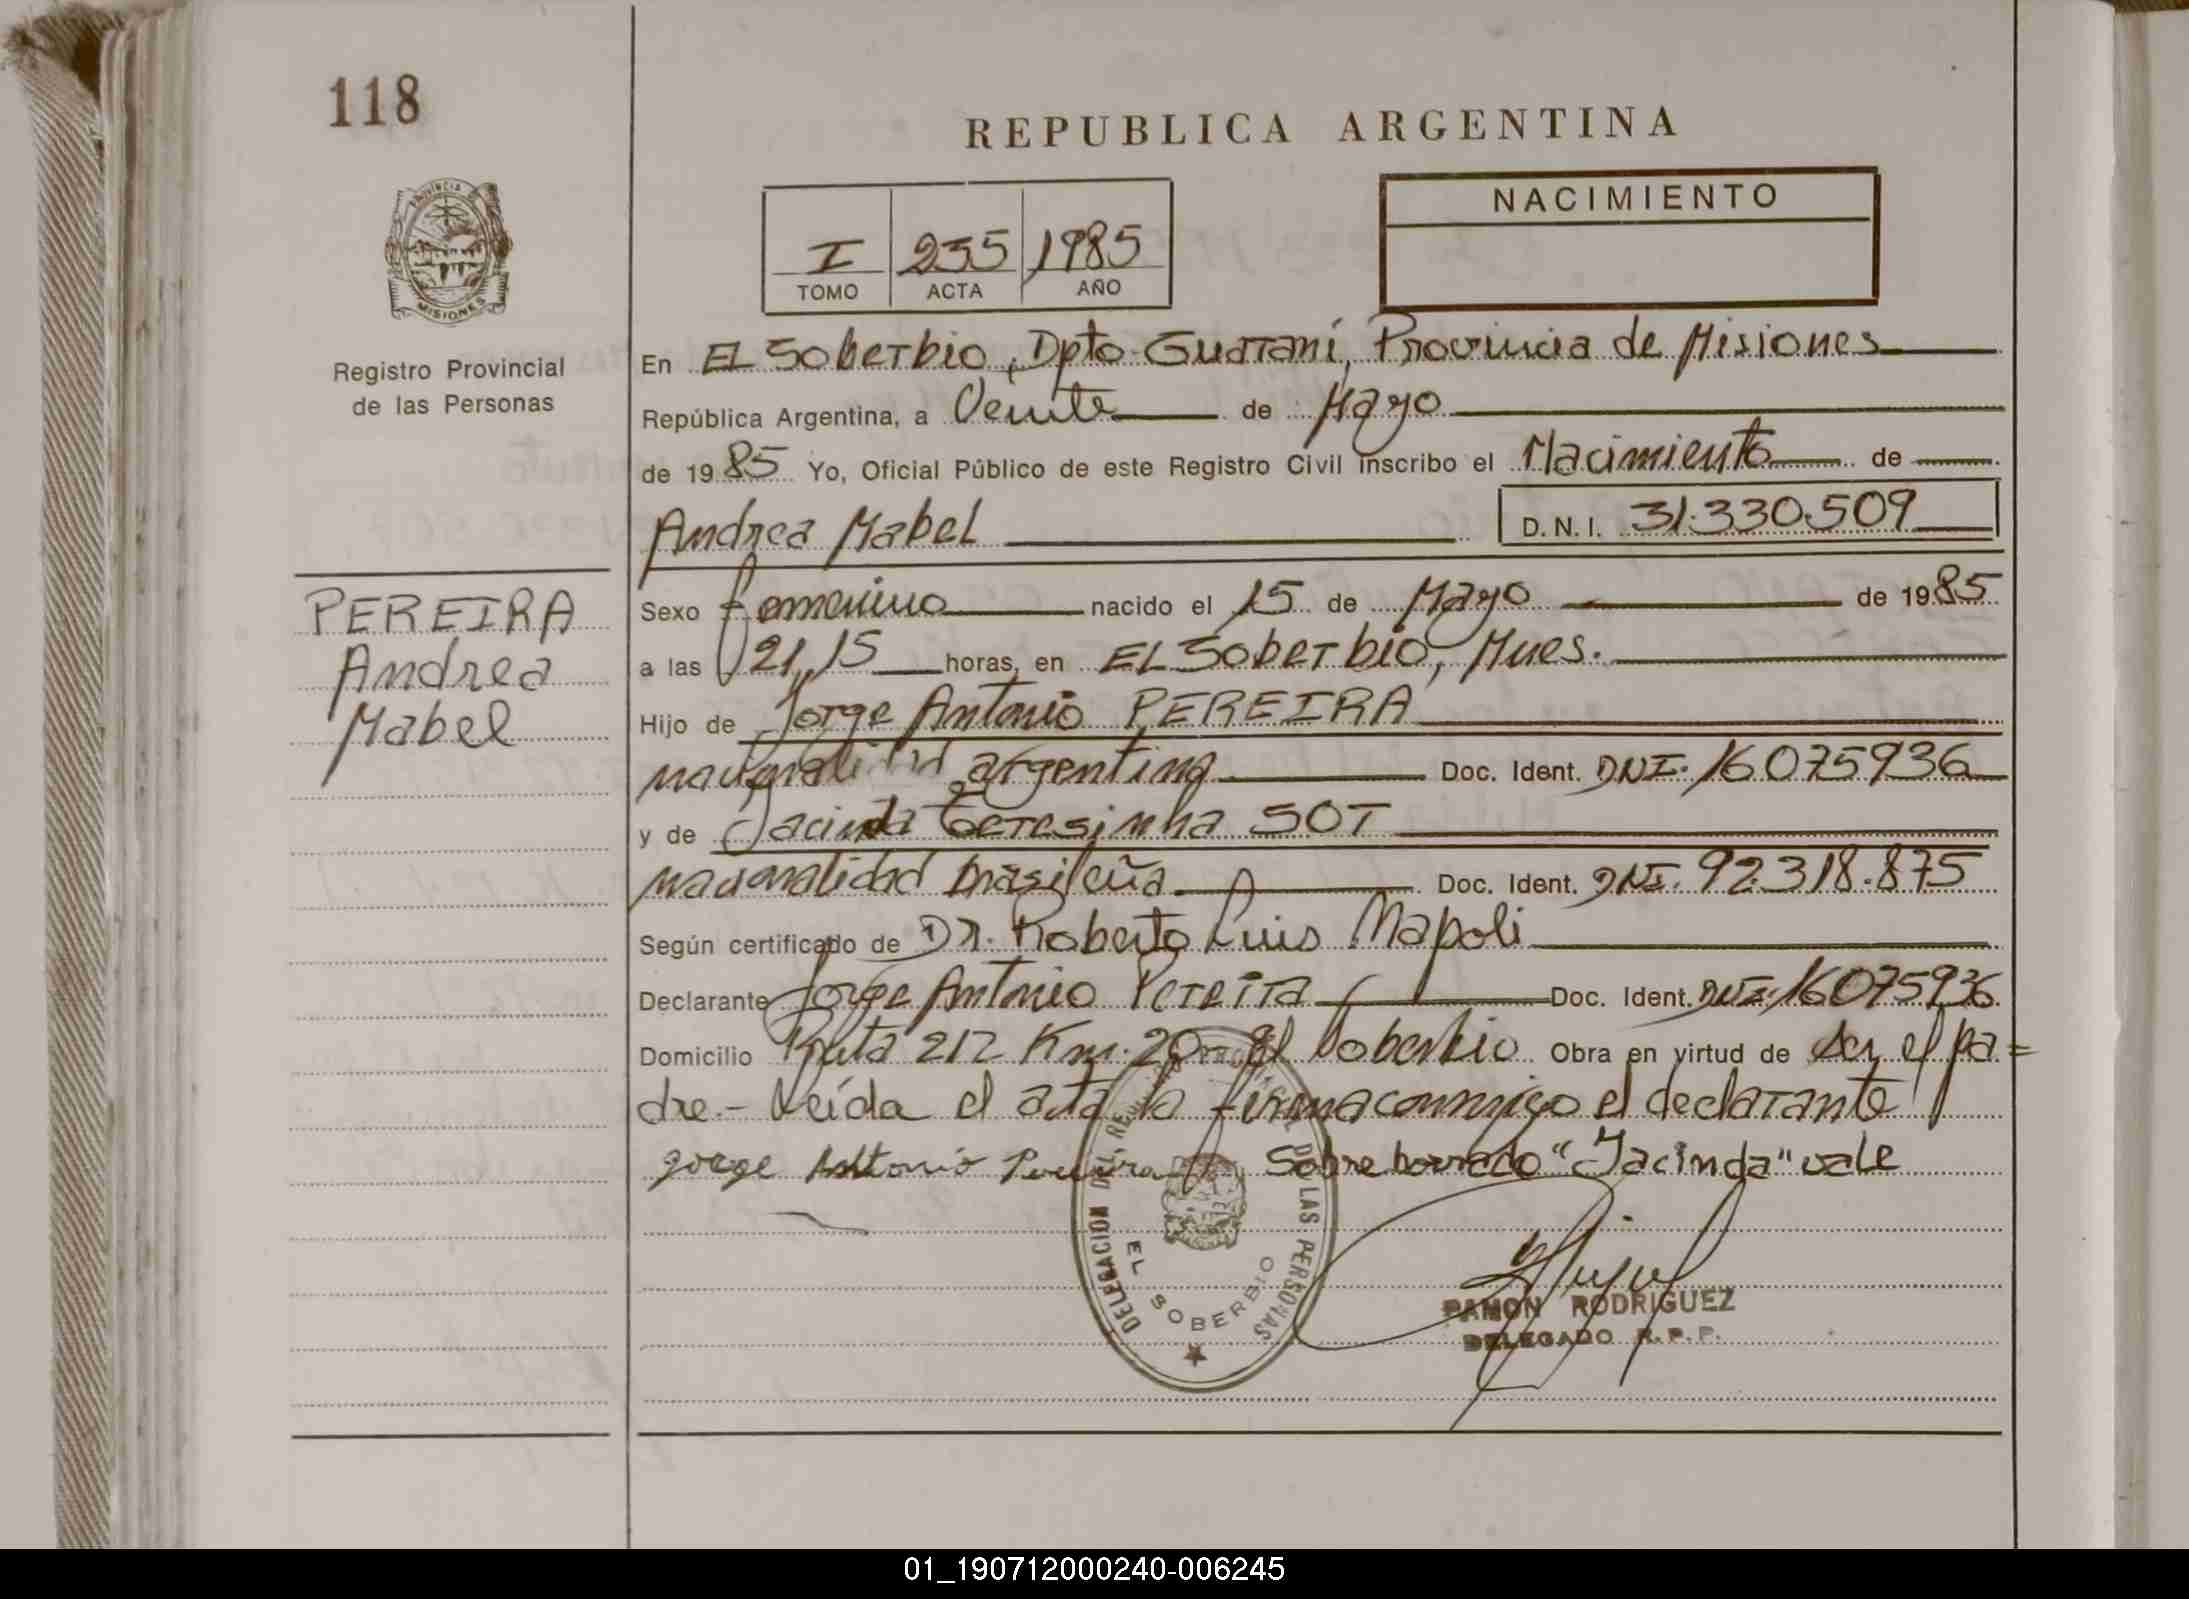 118
REPUBLICA ARGENTINA
PROVINCIA
MISIONES
Registro Provincial
de las Personas
I 235 1985
TOMO ACTA AÑO
NACIMIENTO
PEREIRA
Andrea
Mabel
En EL Soberbio, Dpto. Guaraní, Provincia de Misiones
República Argentina, a Veinte de Mayo
de 1985 Yo, Oficial Público de este Registro Civil inscribo el Nacimiento de
Andrea Mabel D.N.I. 31.330.509
Sexo femenino nacido el 15 de Mayo de 1985
a las 21,15 horas, en EL Soberbio, Mnes.
Hijo de Jorge Antonio PEREIRA
nacionalidad argentina Doc. Ident. DNI. 16075936
y de Jacinda Teresinha SOT
nacionalidad brasileña Doc. Ident. DNI. 92.318.875
Según certificado de Dr. Roberto Luis Napoli
Declarante Jorge Antonio Pereira Doc. Ident. DNI. 16075936
Domicilio Ruta 212 Km. 20 - El Soberbio Obra en virtud de ser el pa=
dre.- Leída el acta la firma conmigo el declarante
jorge Antonio Pereira Sobre borrado "Jacinda" vale
DELEGACION DEL REGISTRO PROVINCIAL DE LAS PERSONAS
EL SOBERBIO
RAMON RODRIGUEZ
DELEGADO R.P.P.
01_190712000240-006245